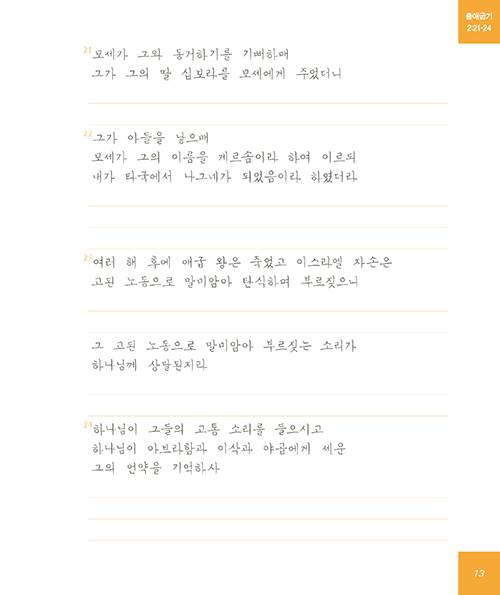 출애굽기
2:21-24
21 모세가 그와 동거하기를 기뻐하매
그가 그의 딸 십보라를 모세에게 주었더니
22 그가 아들을 낳으매
모세가 그의 이름을 게르솜이라 하여 이르되
내가 타국에서 나그네가 되었음이라 하였더라
23 여러 해 후에 애굽 왕은 죽었고 이스라엘 자손은
고된 노동으로 말미암아 탄식하며 부르짖으니
그 고된 노동으로 말미암아 부르짖는 소리가
하나님께 상달된지라
24 하나님이 그들의 고통 소리를 들으시고
하나님이 아브라함과 이삭과 야곱에게 세운
그의 언약을 기억하사
13